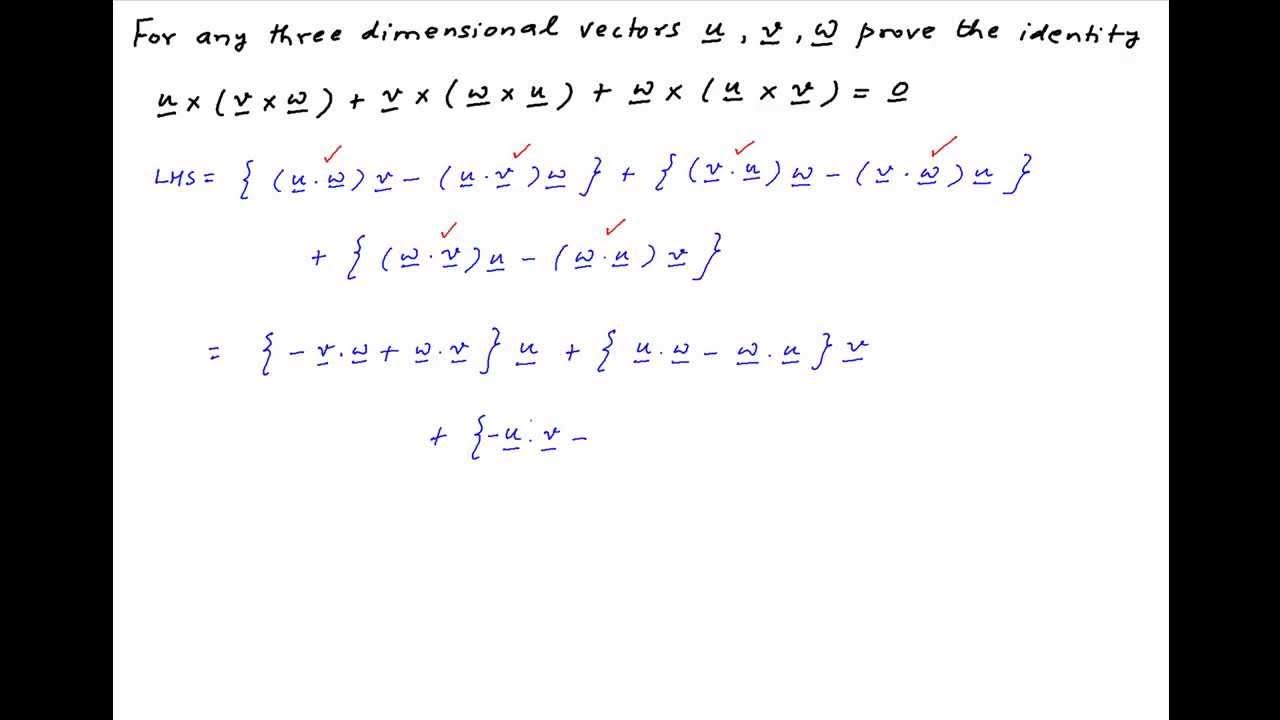 For any three dimensional vectors u, v, w prove the identity
u × (v × w) + v × (w × u) + w × (u × v) = 0
LHS = { (u · w) v − (u · v) w } + { (v · u) w − (v · w) u }
+ { (w · v) u − (w · u) v }
= { − v · w + w · v } u + { u · w − w · u } v
+ { − u · v −